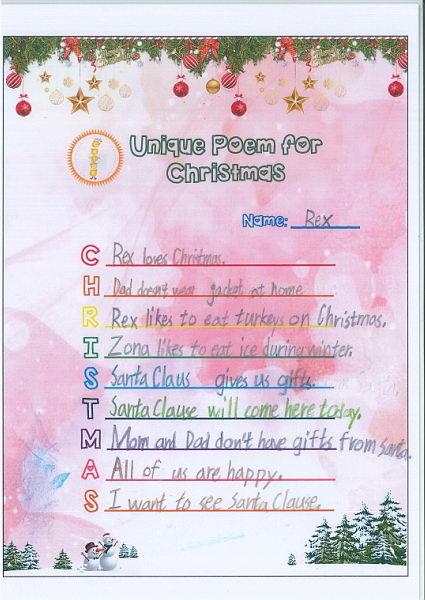 Unique Poem for
Christmas
Name: Rex
C Rex loves Christmas.
H Dad doesn't wear jacket at home
R Rex likes to eat turkeys on Christmas.
I Zona likes to eat ice during winter.
S Santa Claus gives us gifts.
T Santa Clause will come here today.
M Mom and Dad don't have gifts from Santa.
A All of us are happy.
S I want to see Santa Clause.